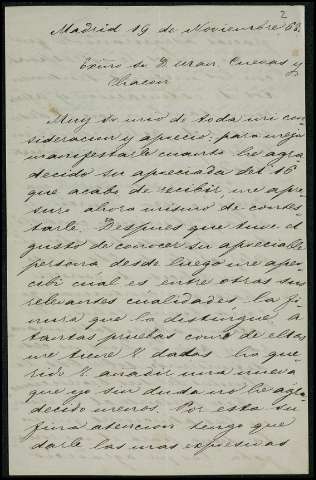 2
Madrid 19 de Noviembre 68.
Exmo Sr D. Juan Cuevas y
Chacon
Muy sr mio de toda mi con
sideracion y aprecio: para mejor
manifestarle cuanto he agra
decido su apreciada del 16
que acabo de recibir me apre
suro ahora mismo de contes
tarle. Despues que tuve el
gusto de conocer su apreciable
persona desde luego me aper
cibí cual es entre otras sus
relevantes cualidades la fi
nura que la distingue á
tantas pruebas como de ellas
me tiene V dadas ha que
rido V añadir una nueva
que yo sin duda no he agra
decido menos. Por esta su
fina atencion tengo que
darle las mas espresivas